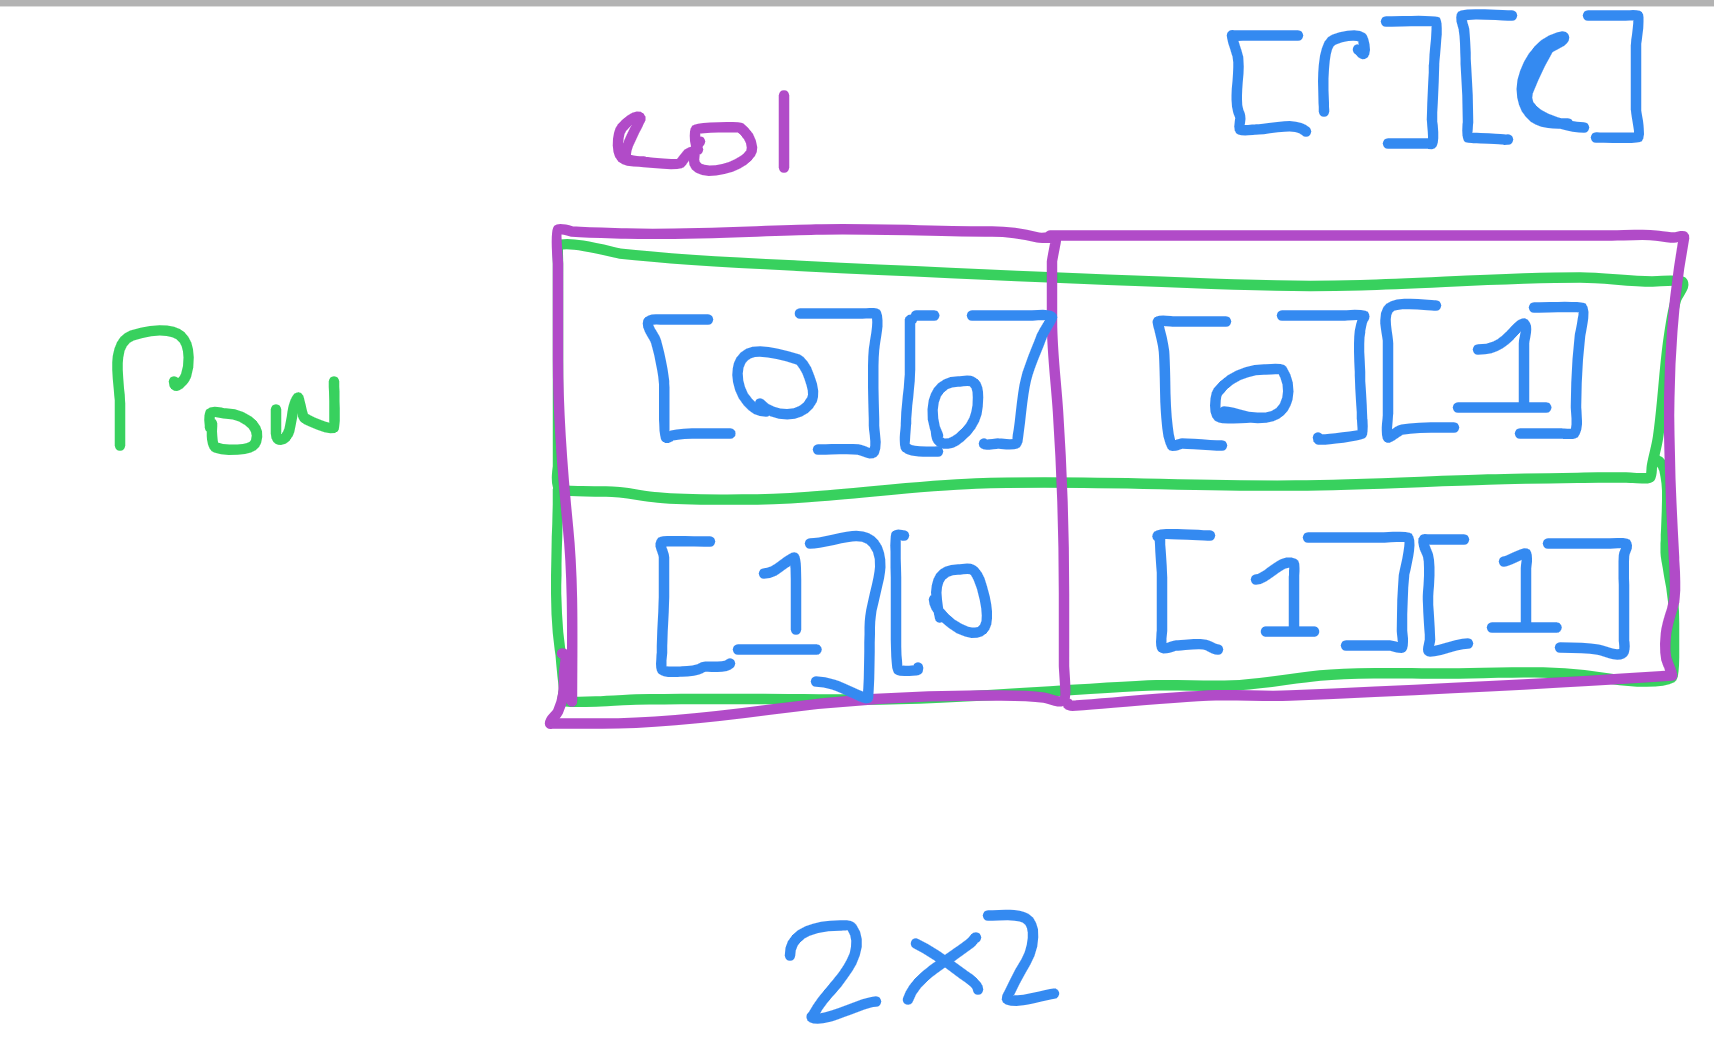 [r][c]
col
row
[0][0] [0][1]
[1][0 [1][1]
2x2